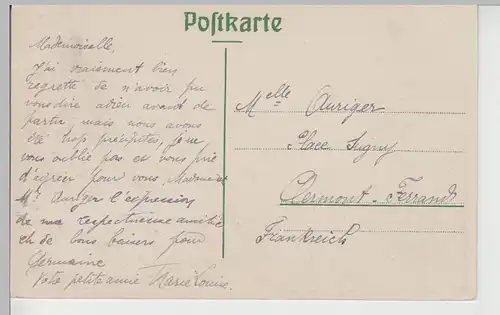 Postkarte
Mademoiselle,
J'ai vraiement bien
regretté de n'avoir pu
vous dire adieu avant de
partir, mais nous avons
été trop précipités, je ne
vous oublie pas et vous prie
d'agréer pour vous, Madame et
Mr Auriger l'expression
de ma respectueuse amitié
et de bons baisers pour
Germaine
Votre petite amie Marie Louise.
Melle Auriger
Place Signy
Clermont-Ferrand
Frankreich